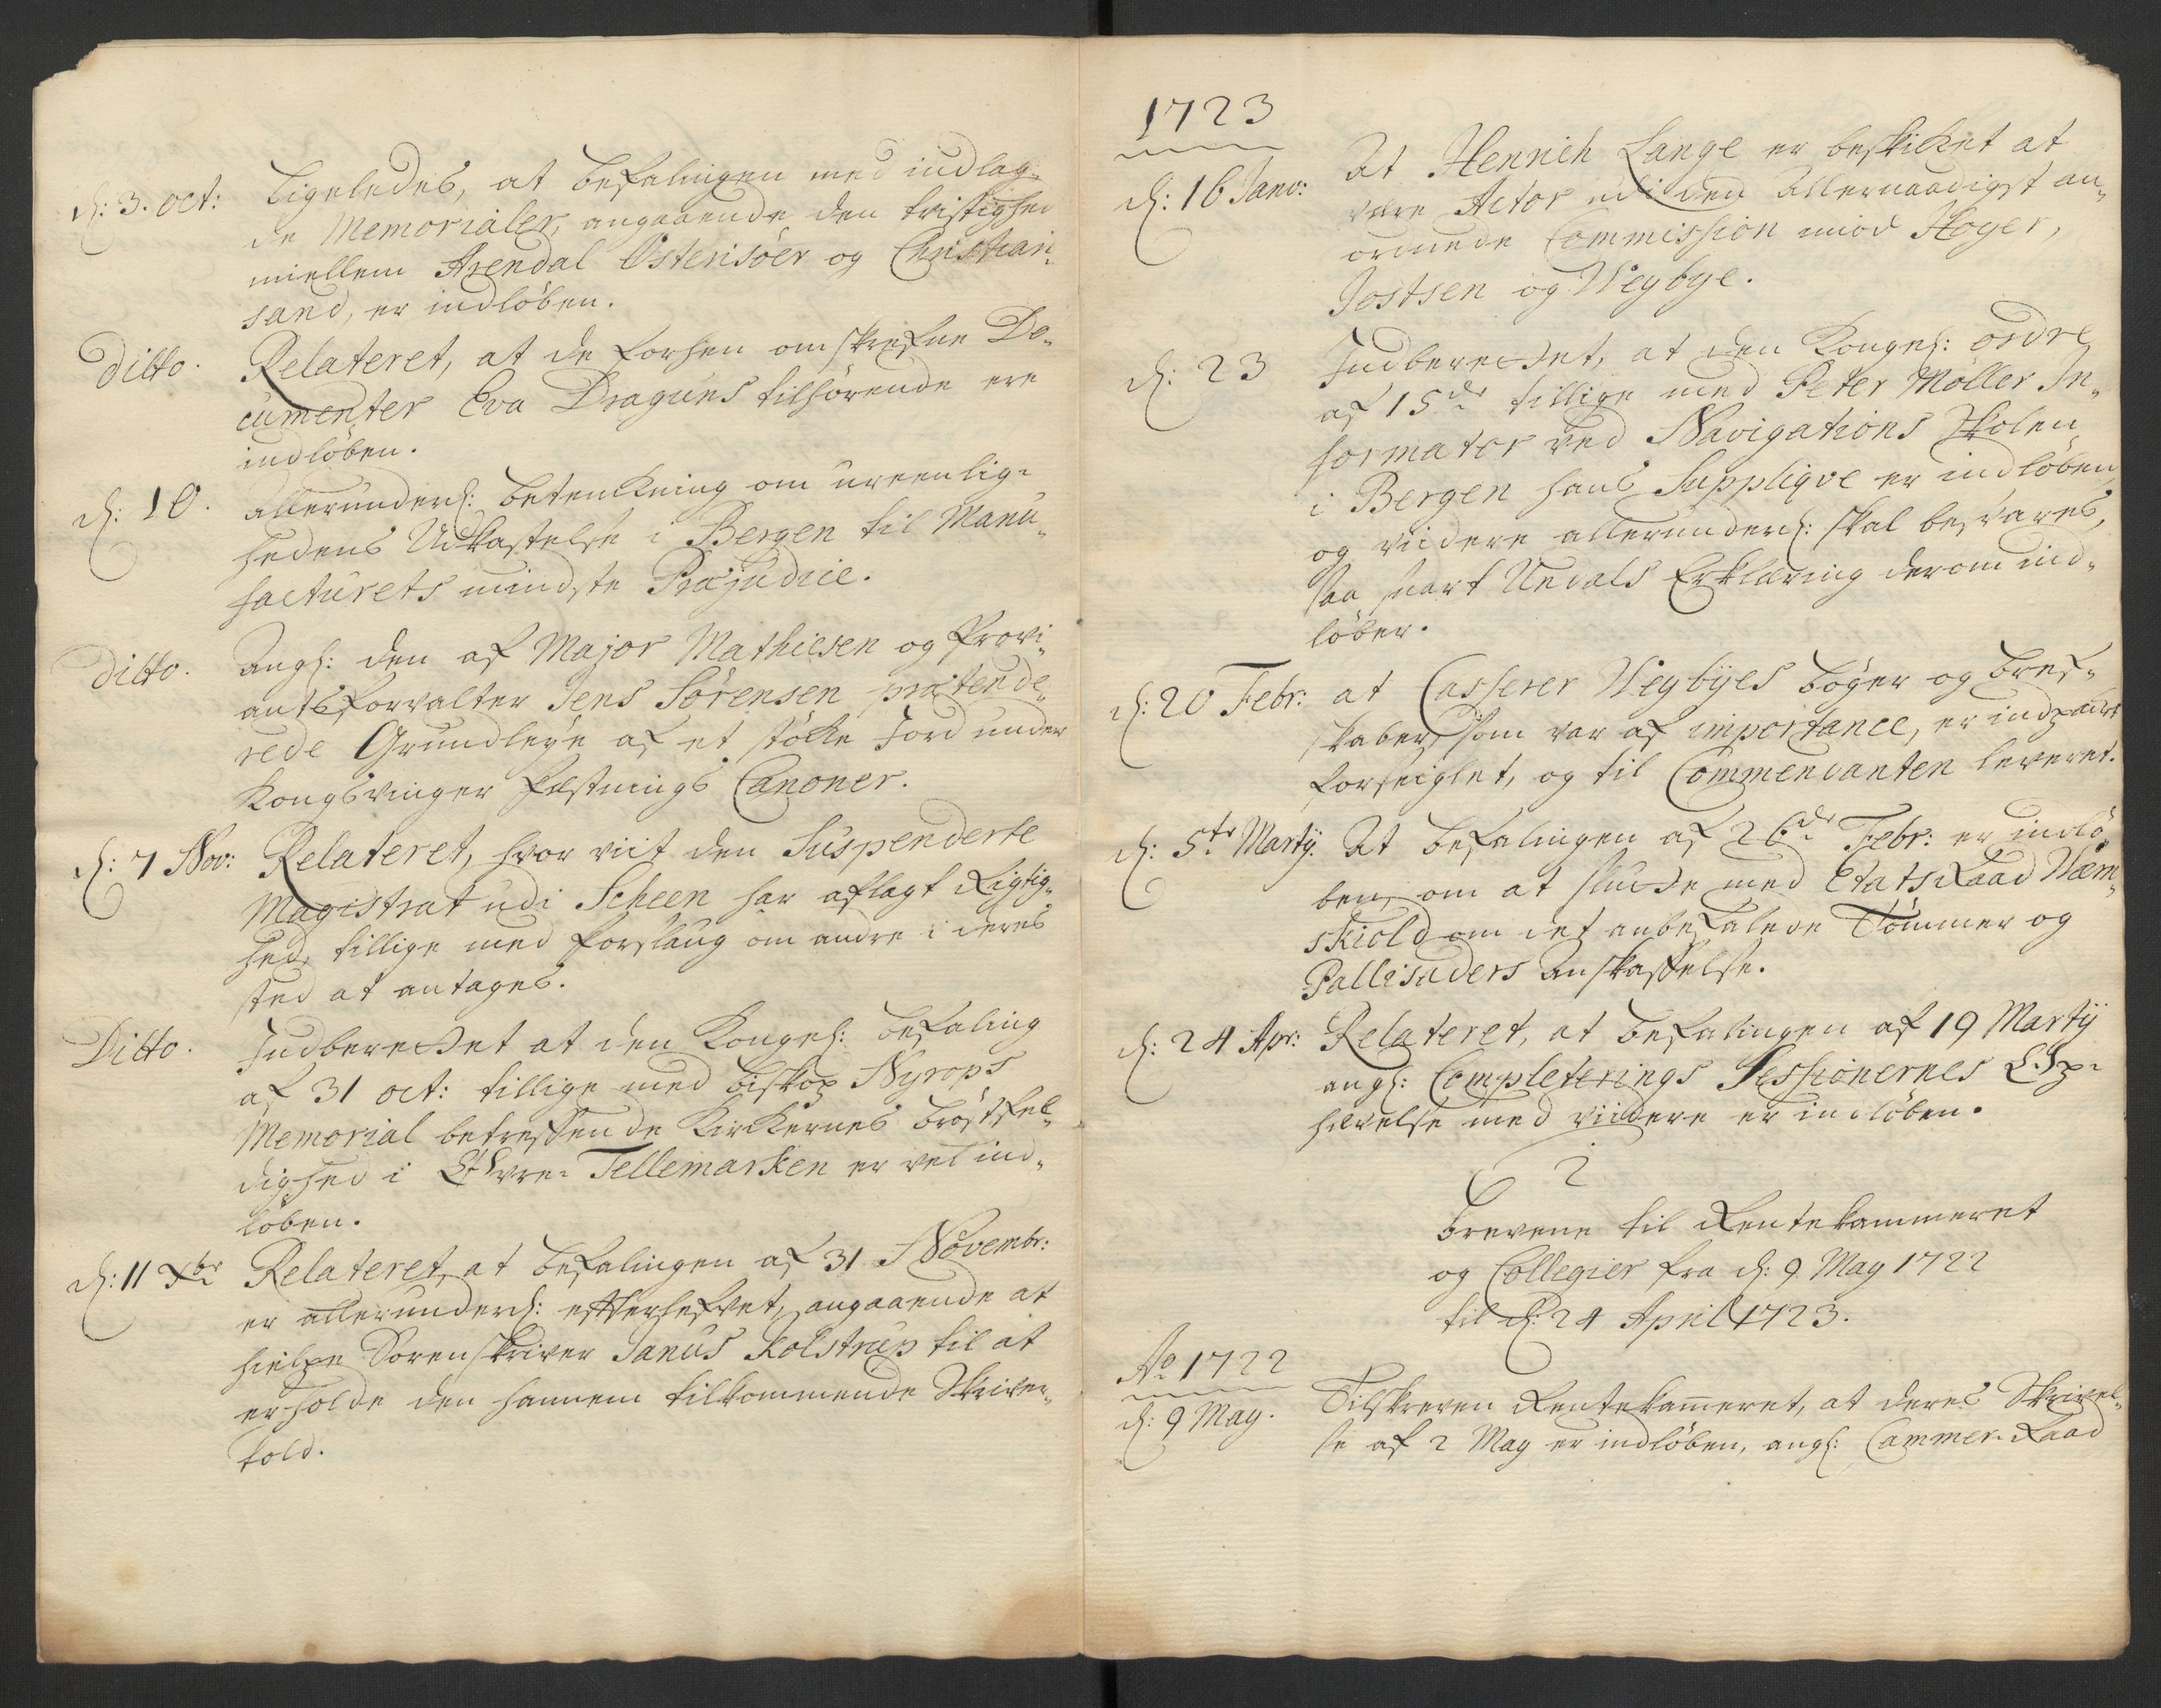 d: 3. oct: Ligeledes, at befalingen med indlag-
de Memorialer, angaaende den tvistighed
miellem Arendal Østerisöer og Christian-
sand, er indlöben.
Ditto. Relateret, at de forhen omskrefne Do-
cumenter Eva Draguns tilhörende ere
indlöben.
d: 10. allerunderd: betenkning om ureenlig-
hedens Udkastelse i Bergen til Manu-
facturets mindste Præjudice.
Ditto. Angd: den af Major Mathiesen og Provi-
antsforvalter Jens Sörensen prætende-
rede Grundleÿe af et støcke Jord under
Kongsvinger Festnings Canoner.
d: 7 Nov: Relateret, hvor viit den Suspenderte
Magistrat udi Scheen har aflagt Rigtig-
hed, tillige med forslaug om andre i deres
sted at antages.
Ditto. Indberettet at den Kongel: befaling
af 31 oct: tillige med Biskop Nyrops
Memorial betreffende Kirkernes bröstfel-
dighed i Øvre- Tellemarken er vel ind-
löben.
d: 11 Xbr Relateret, at befalingen af 31 Novembr:
er allerunderd: efterlefvet, angaaende at
hielpe Sorenskriver Janus Kolstrup til at
erholde den hannem tilkommende Skriver-
told.
1723
d: 16 Janv: At Henrich Lange er beskicket at
være Actor udi den allernaadigst an-
ordnede Commission mod Hoyer,
Jostsen og Weybye.
d: 23 Indberettet, at den Kongel: ordre
af 15de tillige med Peter Möller In-
formator ved Navigations Skolen
i Bergen hans Supplique er indlöben,
og viidere allerunderd: skal besvares,
saa snart Undals Erklæring derom ind-
löber.
d: 20 Febr: at Casserer Weybÿes bøger og bref-
skaber, som var af importance, er indpacket
forseiglet, og til Commendanten leveret.
d: 5te Martÿ. At befalingen af 26de Febr: er indlö-
ben, om at slutte med EtatsRaad Wærn-
skiold om det anbefalede Tömmer og
Pallisaders anskaffelse.
d: 24 Apr: Relateret, at befalingen af 19 Martÿ
angd: Completerings Sessionernes Op-
hævelse med viidere er indlöben.
2
Brevene til Rentekammeret
og Collegier fra d: 9 May 1722
til d: 24 April 1723.
Ao 1722
d: 9 May. Tilskreven Rentekammeret, at deres Skrivel-
se af 2 May er indlöben, angd: Cammer-Raad